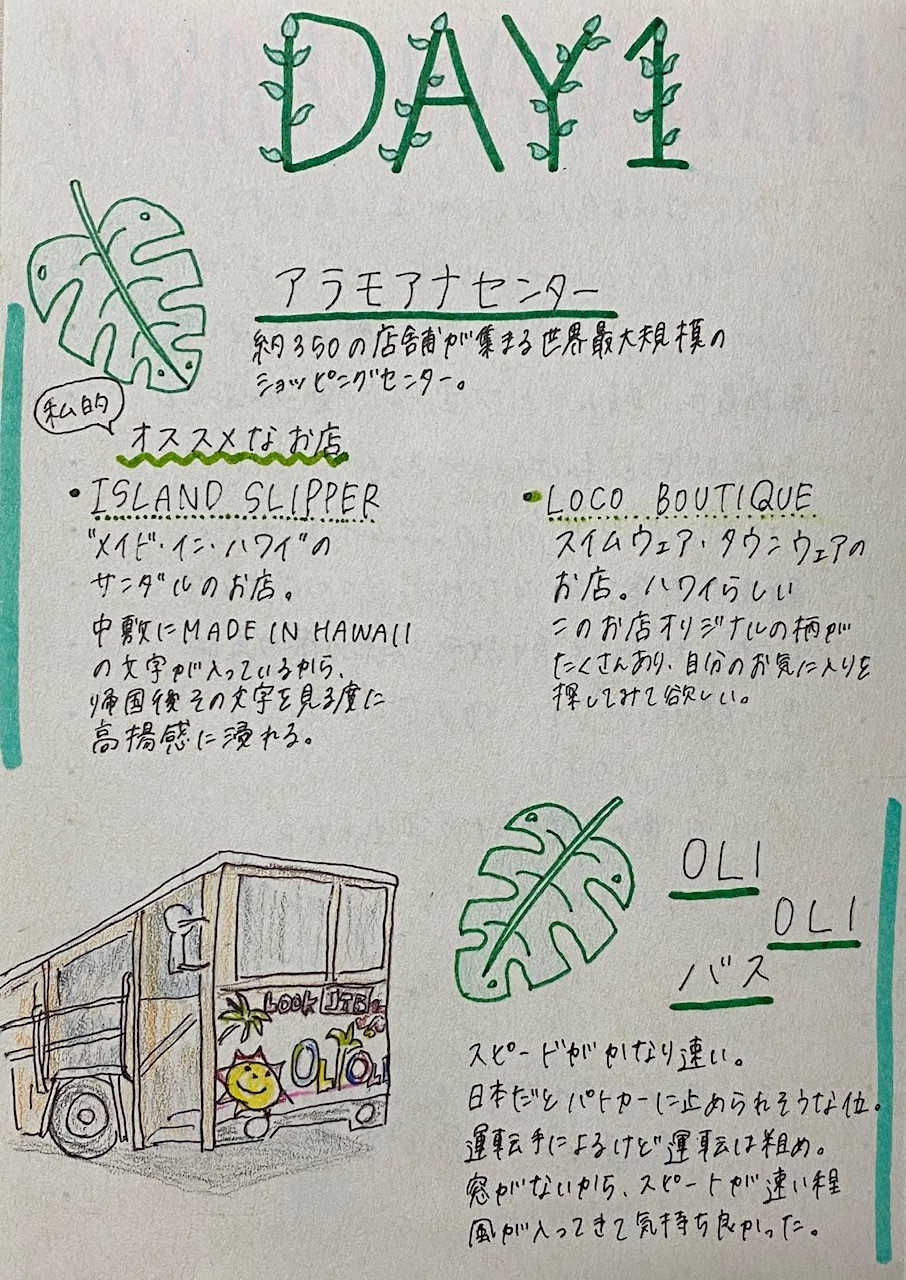 DAY1
アラモアナセンター
約350の店舗が集まる世界最大規模の
ショッピングセンター。
私的
オススメなお店
•ISLAND SLIPPER
"メイド・イン・ハワイ"の
サンダルのお店。
中敷にMADE IN HAWAII
の文字が入っているから、
帰国後その文字を見る度に
高揚感に浸れる。
•LOCO BOUTIQUE
スイムウェア・タウンウェアの
お店。ハワイらしい
このお店オリジナルの柄が
たくさんあり、自分のお気に入りを
探してみて欲しい。
OLI
OLI
バス
スピードがかなり速い。
日本だとパトカーに止められそうな位。
運転手によるけど運転は粗め。
窓がないから、スピードが速い程
風が入ってきて気持ち良かった。
LOOK JTB
OLIOLI